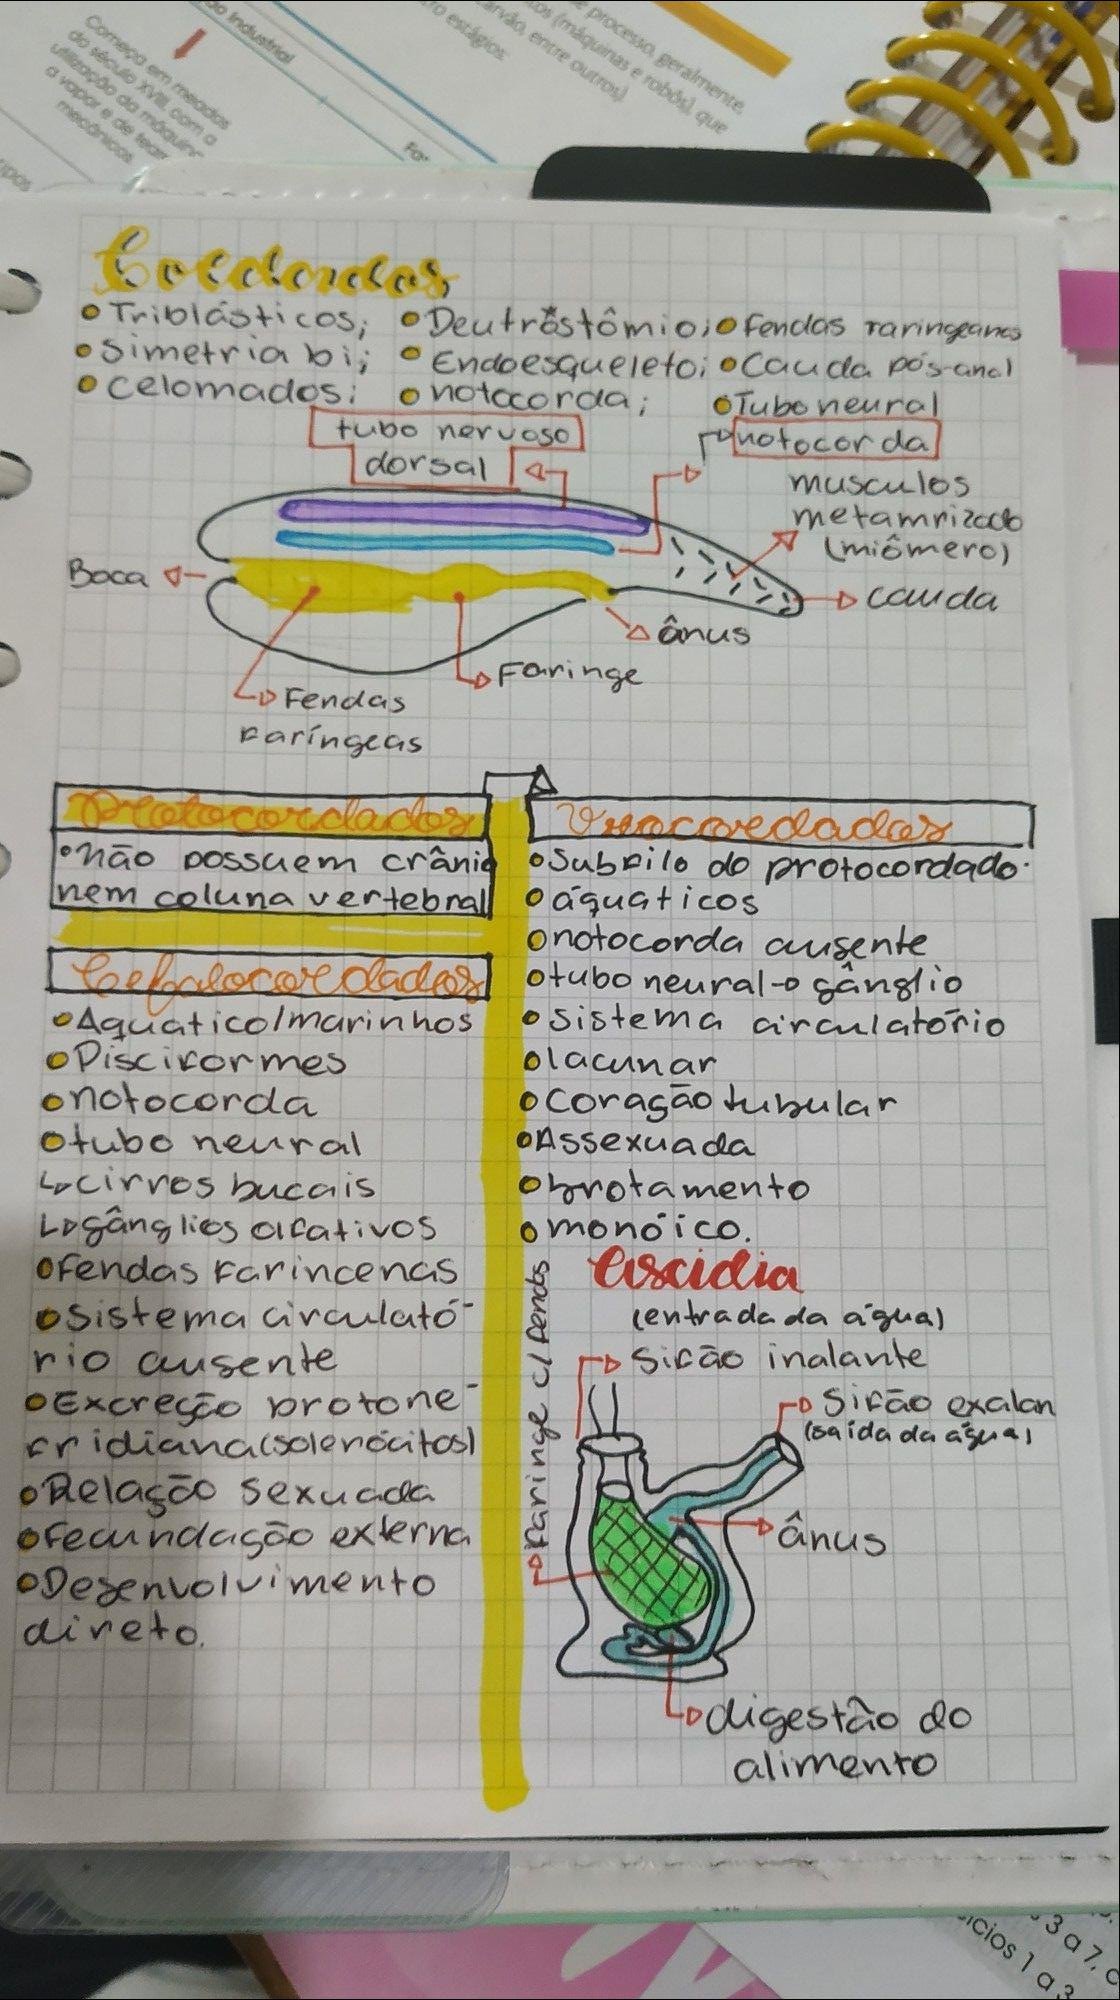 do Industrial
Começa em meados
do século XVIII, com a
utilização da máquina
a vapor e de tear
mecânicos.
processo, geralmente
(máquinas e robôs), que
carvão, entre outros).
estágios:
Cordados
Triblásticos;
Simetria bi;
celomados;
Deutrostômio;
Endoesqueleto;
notocorda;
Fendas faringeanas
Cauda pós-anal
Tubo neural
tubo nervoso
dorsal
notocorda
musculos
metamrizado
(miômero)
Boca
cauda
ânus
Faringe
Fendas
Faríngeas
Protocordados
não possuem crânio
nem coluna vertebral
Cefalocordados
Aquatico/marinhos
Pisciformes
notocorda
tubo neural
cirros bucais
gânglios olfativos
Fendas Farincenas
Sistema circulató-
rio ausente
Excreção protone-
fridiana (solenócitos)
Relação sexuada
Fecundação externa
Desenvolvimento
direto.
Urocordados
Subfilo do protocordado.
áquaticos
notocorda ausente
tubo neural → gânglio
Sistema circulatório
lacunar
coração tubular
Assexuada
brotamento
monóico.
Ascidia
(entrada da água)
Sifão inalante
Sifão exalan
(saída da água)
Faringe c/ Fendas
ânus
digestão do
alimento
3 a 7, c
ícios 1 a 3